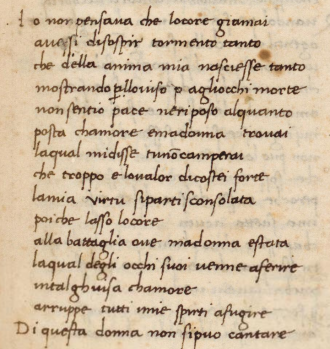 Io non pensava che locore giamai
avessi disospir tormento tanto
che della anima mia nasciesse tanto
mostrando pelloviso agliocchi morte
non sentio pace ne riposo alquanto
posta chamore emadonna trovai
laqual midisse tunō camperai
che troppo e lovalor dicostei forte
lamia virtu siparti sconsolata
poiche lasso locore
alla battaglia ove madonna estata
laqual degli occhi suoi venne aferire
intal ghuisa chamore
a ruppe tutti miei spirti afugire
Di questa donna non sipuo cantare